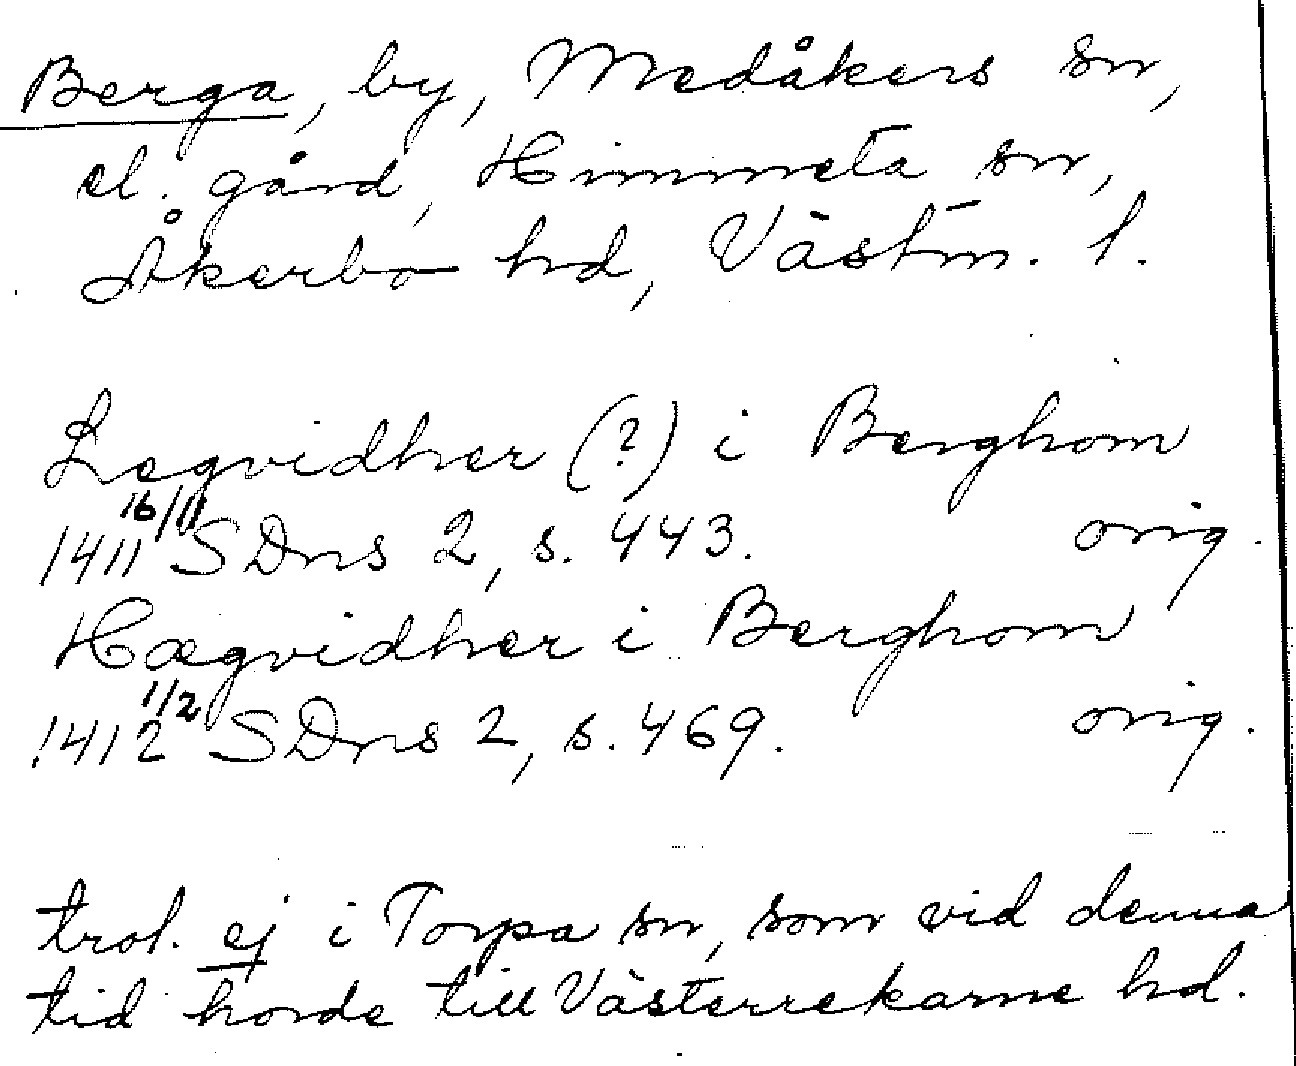 Berga, by, Medåkers sn,
el. gård, Himmeta sn,
Åkerbo hd, Västm. l.
Legvidher (?) i Berghom
16/11
1411 SDns 2, s. 443. orig.
Hægvidher i Berghom
1/2
1412 SDns 2, s. 469. orig.
trol. ej i Torpa sn, som vid denna
tid hörde till Västerrekarne hd.